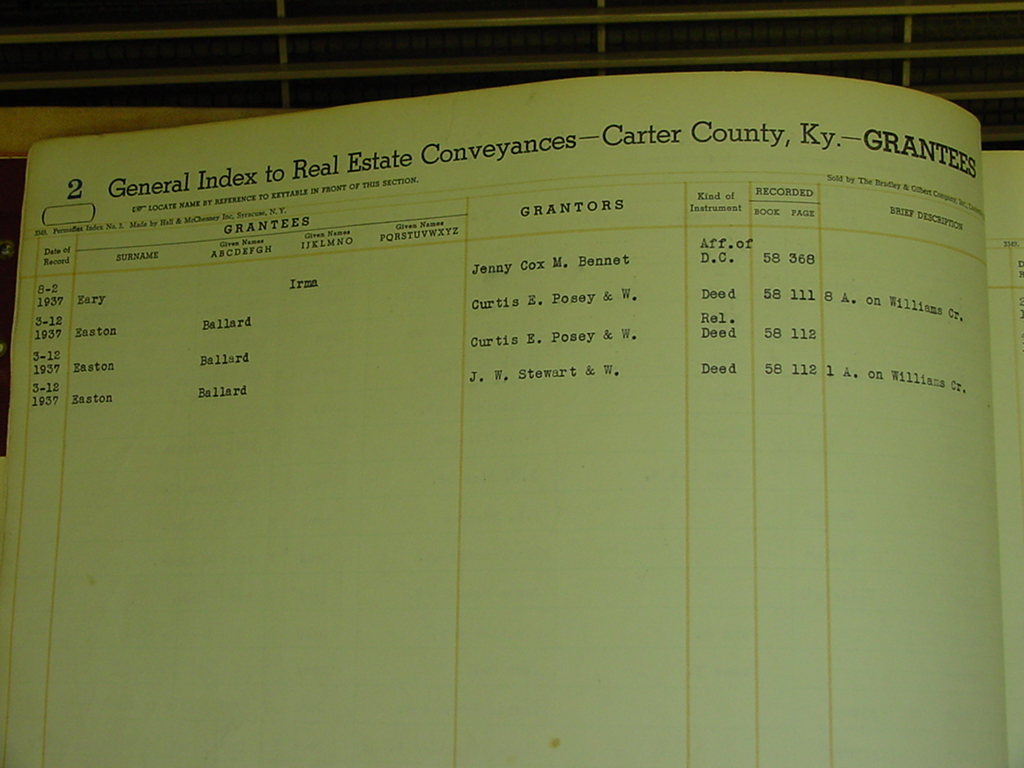 2 General Index to Real Estate Conveyances—Carter County, Ky.—GRANTEES
LOCATE NAME BY REFERENCE TO KEYTABLE IN FRONT OF THIS SECTION.
Sold by The Bradley & Gilbert Company, Inc.
3349. Index No. 3. Made by Hall & McChesney Inc, Syracuse, N. Y.
GRANTEES GRANTORS Kind of Instrument RECORDED BRIEF DESCRIPTION
Date of Record SURNAME Given Names ABCDEFGH Given Names IJKLMNO Given Names PQRSTUVWXYZ BOOK PAGE
8-2 Aff.of
1937 Eary Irma Jenny Cox M. Bennet D.C. 58 368
3-12
1937 Easton Ballard Curtis E. Posey & W. Deed 58 111 8 A. on Williams Cr.
3-12 Rel.
1937 Easton Ballard Curtis E. Posey & W. Deed 58 112
3-12
1937 Easton Ballard J. W. Stewart & W. Deed 58 112 1 A. on Williams Cr.
3349.